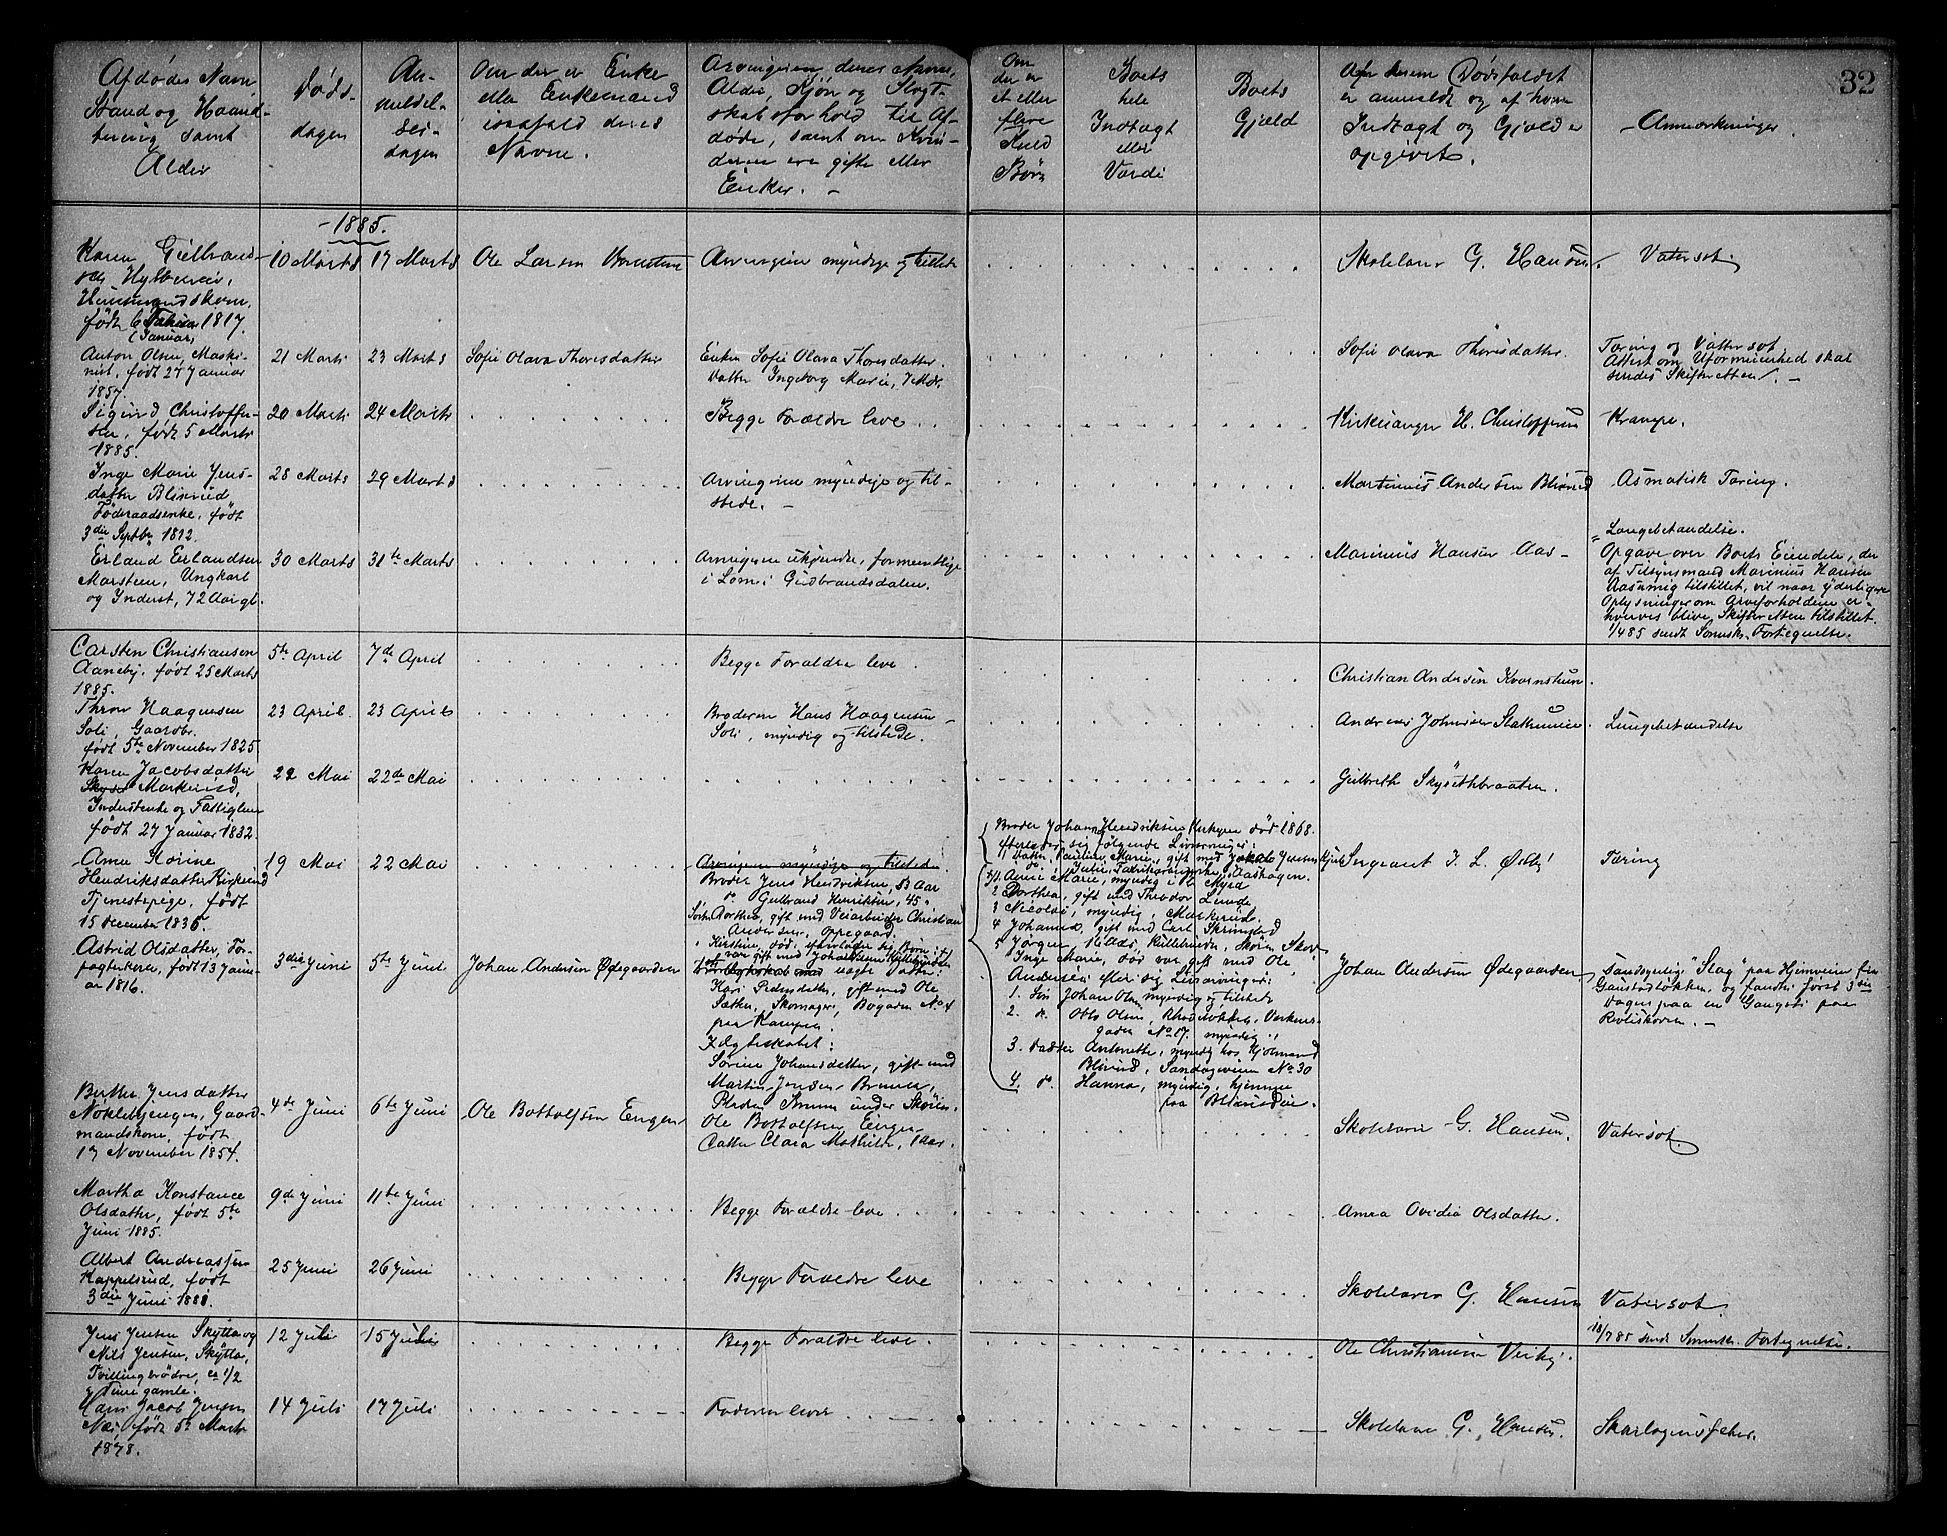 32
Afdødes Navn,
Stand og Haand-
tering samt
Alder
Døds-
dagen
An-
meldel-
ses-
dagen
Om der er Enke
eller Enkemand
isaafald deres
Navne.
Arvingerne, deres Navne,
Alder, Kjøn og Slægt-
skabsforhold til Af-
døde, samt om Kvin-
derne ere gifte eller
Enker. -
Om
der er
et eller
flere
Kuld
Børn
Boets
hele
Indtægt
eller
Værdi
Boets
Gjæld
Af hvem Dødsfaldet
er anmeldt og af hvem
Indtægt og Gjæld er
opgivet.
Anmærkninger.
-1885.
Karen Gulbrands-
Huusmandskone,
født 6 1817.
(Januar)
10 Marts
17 Marts
Ole Larsen
Arvingerne myndige og tilstede
Skolelærer G. Hansen
Vatersot
Anton Olsen, Maski-
nist, født 27 Januar
1857.
21 Marts
23 Marts
Sofie Olava Thoresdatter
Enken Sofie Olava Thoresdatter.
Datter Ingeborg Marie,
Sofie Olava Thoresdatter.
Tæring og Vattersot.
Attest om Uformuenhed skal
sendes Skifteretten. -
Sigurd Christoffer-
sen, født 5 Marts
1885.
20 Marts
24 Marts
Begge Forældre leve
Kirkesanger H. Christoffersen
Krampe.
Inge Marie Jens-
datter Blixrud
Føderaadsenke, født
3die Septbr 1812.
28 Marts
29 Marts
Arvingerne myndige og til-
stede. -
Martinius Andersen Blixrud
Asmatisk Tæring.
Erland Erlandsen
Marsteen, Ungkarl
og Inderst, 72 Aar gl.
30 Marts
31te Marts
Arvingerne ukjendte, formentlige
i Lom i Gudbrandsdalen.
Marinius Hansen Aas-
Lungebetændelse.
Opgave over Boets Eiendele, der
af Tilsynsmand Marinius Hansen
Aas mig tilstillet, vil naar yderligere
Oplysninger om Arveforholdene er-
hverves blive Skifteretten tilstillet.
1/4 85 sendt Sorensk. Fortegnelse.
Carsten Christiansen
Aaneby, født 25 Marts
1885.
5te April
7de April
Begge Forældre leve
Christian Andersen Kvernstuen.
Thron Haagensen
Soli, Gaardbr.
født 5te November 1825
23 April.
23 April
Broderen Hans Haagensen
Soli, myndig og tilstede.
Andreas Johnsen
Lungebetændelse
Karen Jacobsdatter
Markerud,
Inderstenke og Fattiglem
født 27 Januar 1832.
22 Mai
22de Mai
Gulbrith Skysethbraaten.
Anne Karine
Hendriksdatter Kirkerud
Tjenestepige, født
15 December 1836.
19 Mai
22 Mai
Arvingerne myndige og tilstede
Broder Jens Hendriksen, 53 Aar
do. Gulbrand Henriksen, 45 "
Søster Dorthea, gift med Veiarbeider Christian
Andersen, Oppegaard.
Kirstine, død, efterlader sig Børn:
Broder Johan Hendriksen Kirkeruen død 1868.
efterlader sig følgende Livsarvinger:
1. Anne Marie, myndig
2 Dorthea, gift med Theodor Lunde
3 Nicolai, myndig, Markerud.
4 Johanne, gift med Carl Skrimstad
Inge Marie, død var gift med Ole
Andersen efter sig Livsarvinger:
1. Søn Johan Olsen myndig og tilstede
2. do. Otto Olsen,
gaden No 17. myndig
3. Datter Antonette, myndig hos
Blixrud, Sandagerveien No 30
4. do. Hanna, myndig, hjemme
paa
Sergeant J. L. Ødby
Tæring
Astrid Olsdatter, For-
pagterkone, født 13 Janu-
ar 1816.
3die Juni
5te Juni
Johan Andersen Ødegaarden
Kari Pedersdatter, gift med Ole
Sæther, Skomager, Bøgaden No 4
paa Kampen.
I Ægteskabet:
Sørine Johansdatter, gift med
Martin Jensen
Johan Andersen Ødegaarden
Sandsynlig "Slag" paa Hjemveien fra
Gaustadløkken, og fandtes først 3die
Dagen paa en Gangsti paa
-
Berthe Jensdatter
Nøklebyengen, Gaard-
mandskone, født
17 November 1854.
4de Juni
6te Juni
Ole Bottolfsen Engen
Ole Bottolfsen Engen
Datter Clara Mathilde, 1 Aar.
Skolelærer G. Hansen.
Vatersot.
Martha Konstance
Olsdatter, født 5te
Juni 1885.
9de Juni
11te Juni
Begge Forældre leve
Anna Ovidia Olsdatter.
Albert Andreassen
Kappelsrud, født
3die Juni 1881.
25 Juni
26 Juni
Begge Forældre leve
Skolelærer G. Hansen
Vatersot
18/7 85 sendt Sorensk. Fortegnelse.
Jens Jensen Skytta og
Nils Jensen, Skytta,
Tvillingbrødre, ca 1/2
Time gamle.
12 Juli
15 Juli
Begge Forældre leve.
Ole Christiansen
Hans Jacob Jensen
Næs, født 5te Marts
1878.
14 Juli
17 Juli
Faderen lever
Skolelærer G. Hansen.
Skarlagensfeber.